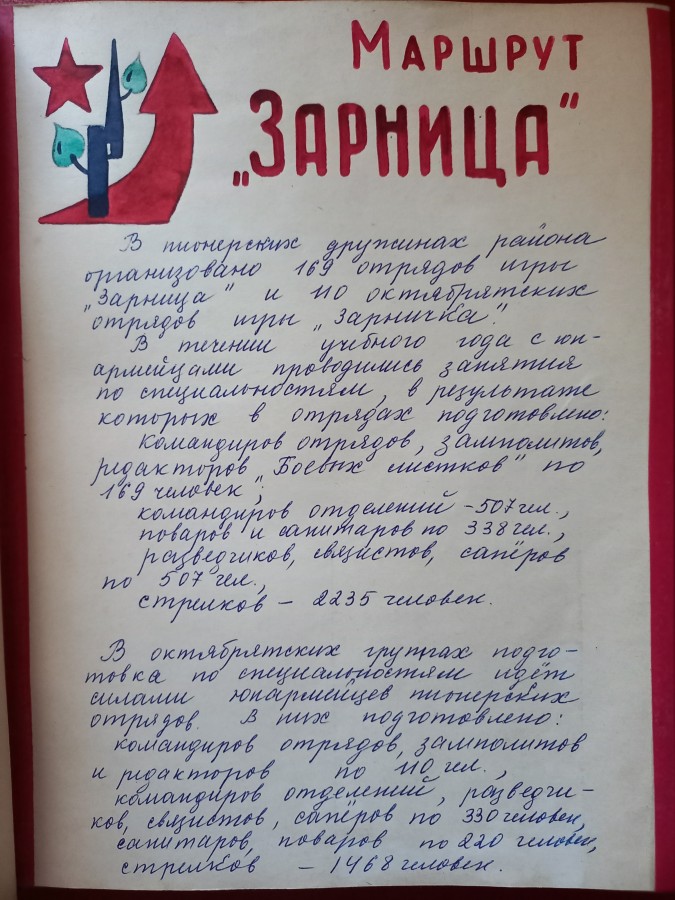 Маршрут
„Зарница“
В пионерских дружинах района
организовано 169 отрядов игры
„Зарница“ и 110 октябрятских
отрядов игры „Зарничка“.
В течении учебного года с юн-
армейцами проводились занятия
по специальностям, в результате
которых в отрядах подготовлено:
командиров отрядов, замполитов,
редакторов „Боевых листков“ по
169 человек;
командиров отделений – 507 чел.,
поваров и санитаров по 338 чел.,
разведчиков, связистов, сапёров
по 507 чел.,
стрелков – 2235 человек.
В октябрятских группах подго-
товка по специальностям идёт
силами юнармейцев пионерских
отрядов. В них подготовлено:
командиров отрядов, замполитов
и редакторов по 110 чел.,
командиров отделений, разведчи-
ков, связистов, сапёров по 330 человек,
санитаров, поваров по 220 человек,
стрелков – 1468 человек.